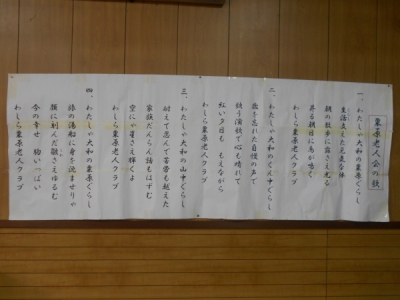 栗原老人会の歌
一、わたしゃ大和の栗原ぐらし
生活支えた毛麦を抹
朝の散歩に露さえ光る
昇る朝日に鳥が鳴く
わしら栗原老人クラブ
二、わたしゃ大和のくんなぐらし
歌を忘れた自慢の声で
銭う演技で心も晴れて
紅い夕日も もえながら
わしら栗原老人クラブ
三、わたしゃ大和の山中ぐらし
耐えて忍んで苦労も越えた
家族だんらん話もはずむ
空にゃ星さえ輝くよ
わしら栗原老人クラブ
四、わたしゃ大和の栗原ぐらし
旅の湯船に身を沈ませりゃ
顔に刻んだ皺さえゆるむ
今の幸せ 胸いっぱい
わしら栗原老人クラブ